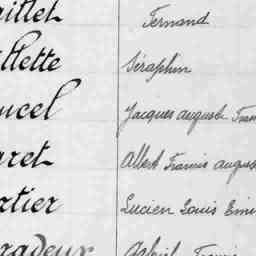 aillet Fernand
llette Séraphin
ucel Jacques auguste Fran
aret Albert Francis august
rtier Lucien Louis Emi
radeux Gabriel Francis